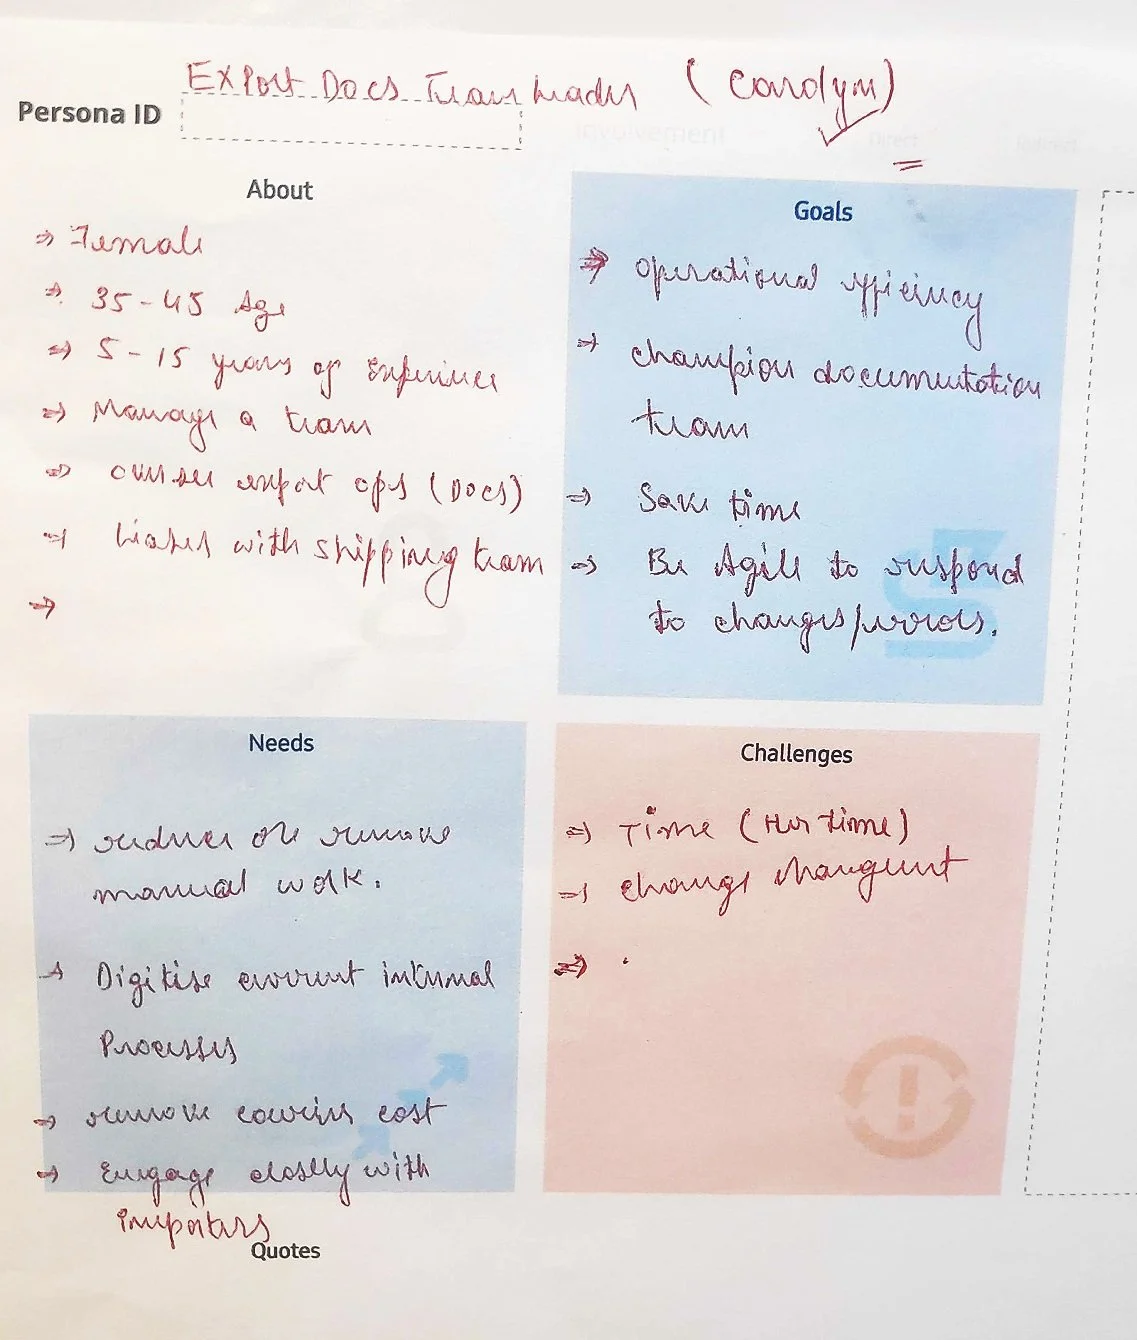 Export Docs Team Leader (Carolyn)
Persona ID
Involvement Direct
About
⇒ Female
⇒ 35-45 Age
⇒ 5-15 years of Experience
⇒ Manage a team
⇒ oversee export ops (Docs)
⇒ Liases with shipping team
⇒
Goals
⇒ operational efficiency
⇒ champion documentation
team
⇒ Save time
⇒ Be Agile to respond
to changes/errors.
Needs
⇒ reduce or remove
manual work.
⇒ Digitise current internal
Processes
⇒ remove couriers cost
⇒ Engage closely with
importers
Challenges
⇒ Time (Her time)
⇒ change
⇒ .
Quotes